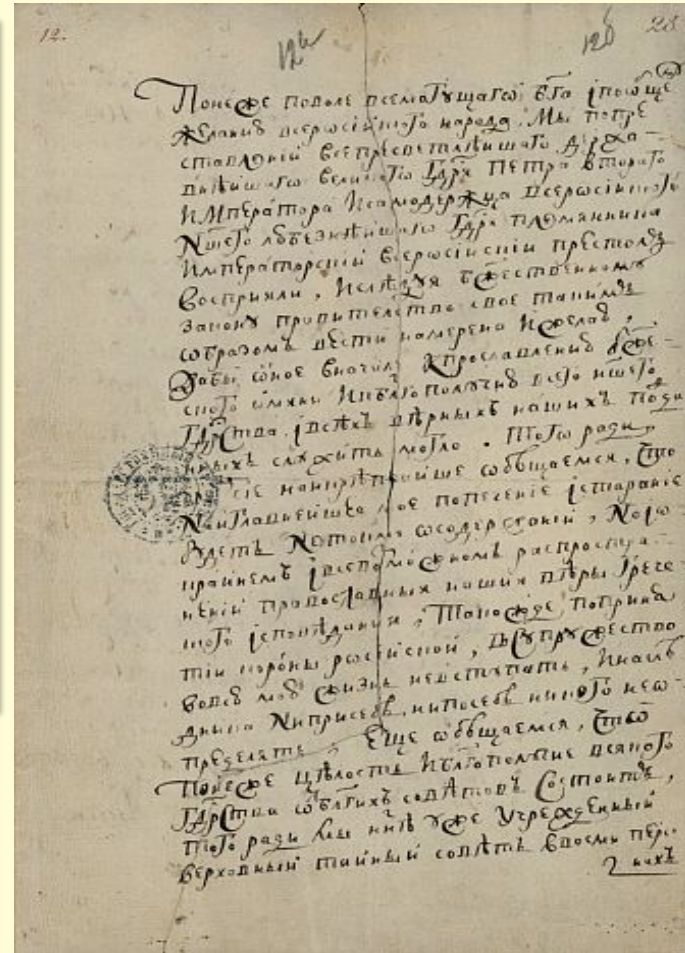 12. 12а 12б 28
Понеже поволе всемогущаго бга іпообще
желанию всеросіиского народа. Мы попре
ставлениі всепресветлѣишаго держа-
внѣишаго великого Гдря Петра второго
Императора Исамодержца всеросіиского
Ншего любезнѣишаго Гдря племянника
Императорскиі всеросіискіи престолъ
восприяли, Ислѣдуя бжественному
закону правителство свое такимъ
образомъ вести намерена Ижелаю,
дабы оное вначале кпрославлению бже
ского имяни Икблгополучию всего ншего
Гдрства. івсѣхъ вѣрныхъ нашихъ подда
нныхъ служить могло. Того ради,
чрезъ сіе наикрѣпчайше обѣщаемся, что
Наиглавнейшее мое попечение істараніе
будетъ Нетокмо осодержаниі, Ноіо
крайнемъ івсевозможномъ распростра-
нениі православныя нашия вѣры грече
ского ісповѣдания, Такожде, поприня
тіи короны росіиской, Всупружество
вовсю мою жизнь невступать, Инаслѣ
дника Ниприсебѣ, нипосебѣ никого нео
пределять, Еще обѣщаемся, Что
понеже цѣлость Иблгополучие всякого
Гдрства отблгихъ совѣтовъ Состоитъ,
того ради мы ннѣ уже Учрежденныи
верховныи таиныи совѣтъ ввосми персо
нахъ